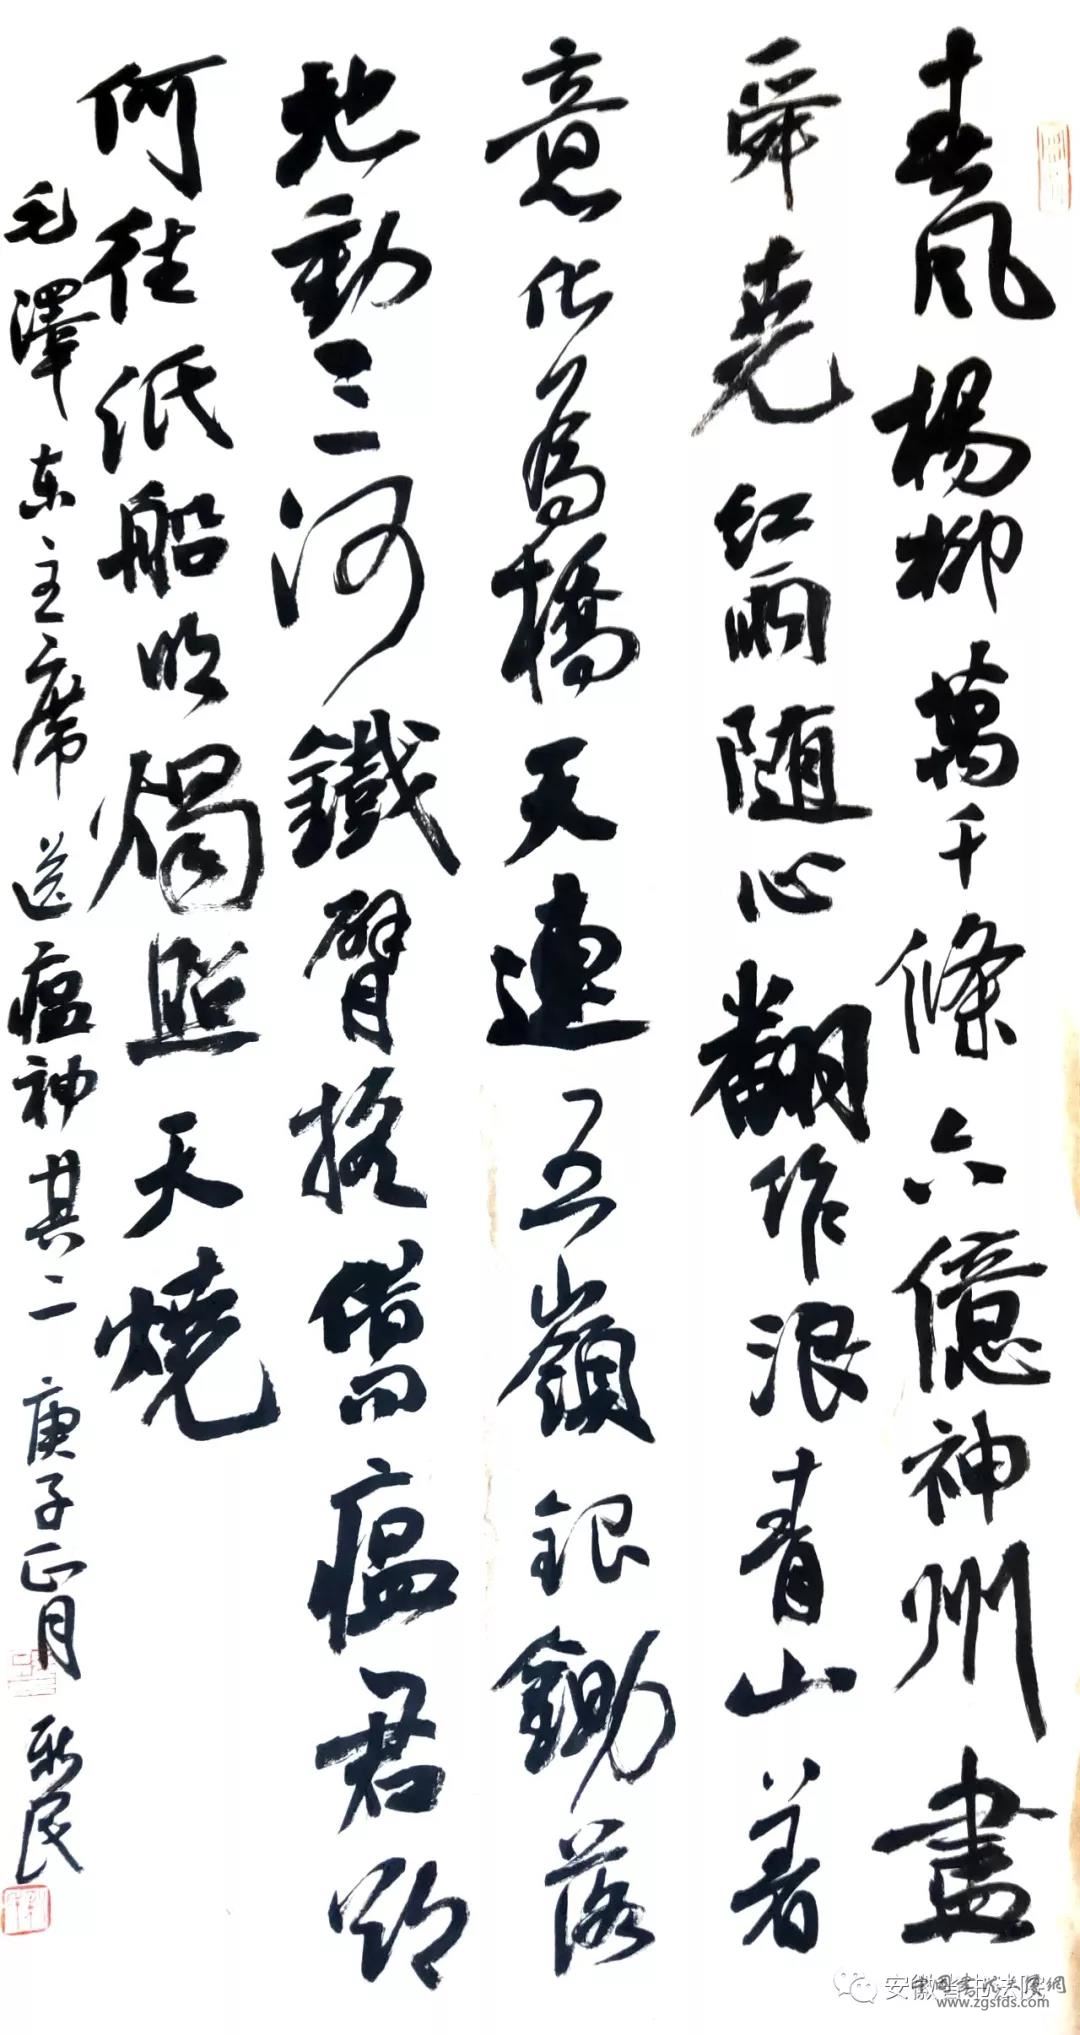 春風楊柳萬千條六億神州盡
舜堯紅雨随心翻作浪青山着
意化為橋天連五嶺銀鋤落
地動三河鐵臂搖借問瘟君欲
何往紙船明燭照天燒
毛澤东主席送瘟神其二庚子正月
安徽省书法院
www.zgsfds.com